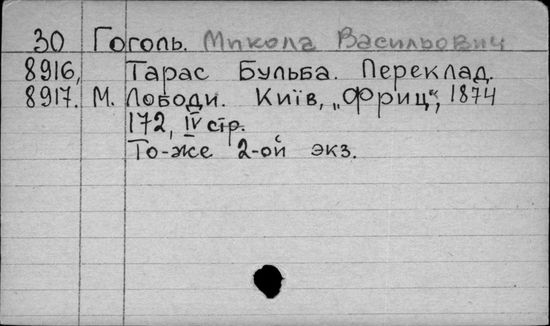 30 Гоголь. Микола Васильович
8916, Тарас Бульба. Переклад.
8917. М. Лободи. Київ, „Фриц“, 1874
172, IV стр.
То-же 2-ой экз.